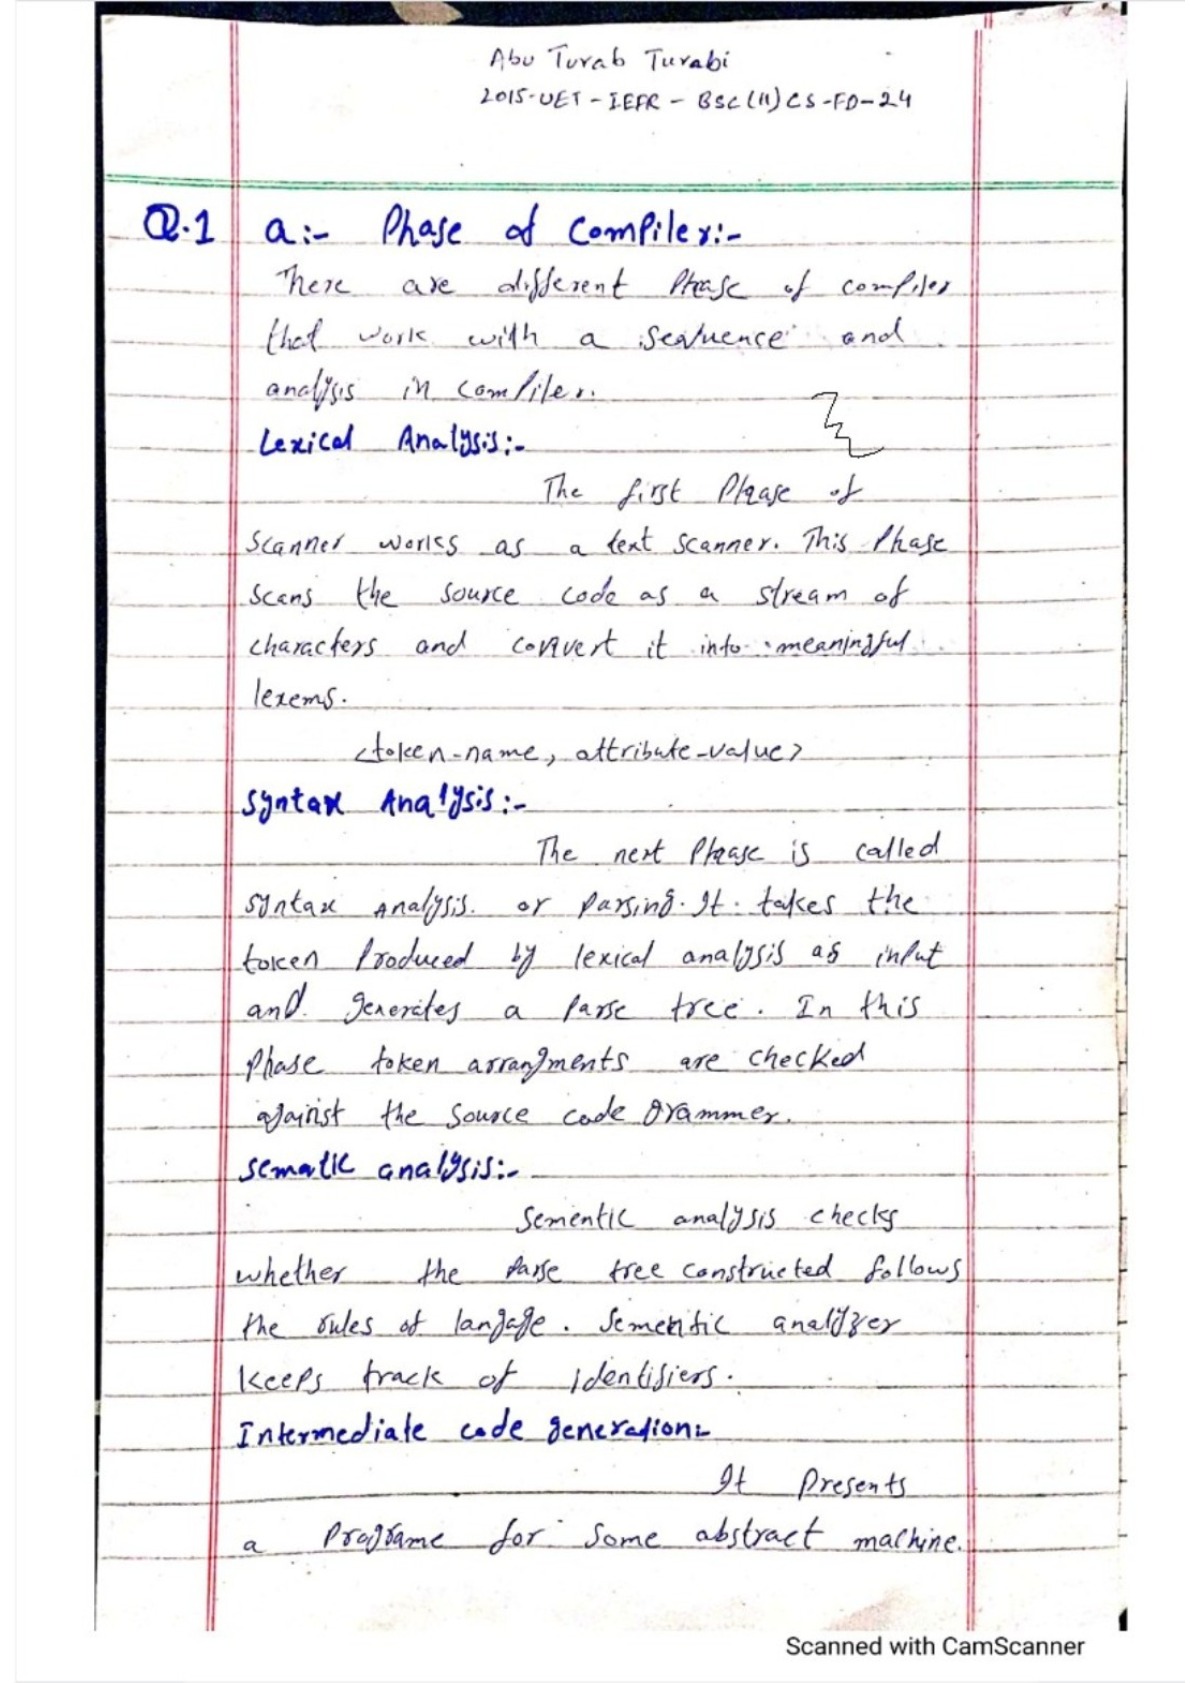 Abu Turab Turabi
2015-UET-IEFR-BSC(11)CS-FD-24
Q.1 a:- Phase of Compiler:-
There are different Phase of compiler
that work with a sequence and
analysis in compiler.
Lexical Analysis:-
The first Phase of
scanner works as a text scanner. This Phase
scans the source code as a stream of
characters and convert it into meaningful
lexems.
<token-name, attribute-value>
Syntax Analysis:-
The next Phase is called
syntax analysis. or parsing. It takes the
token produced by lexical analysis as input
and generates a parse tree. In this
phase token arrangments are checked
against the source code grammer.
sematic analysis:-
Sementic analysis checks
whether the parse tree constructed follows
the rules of langage. Sementic analyzer
keeps track of identifiers.
Intermediate code generation:-
It presents
a programe for some abstract machine.
Scanned with CamScanner